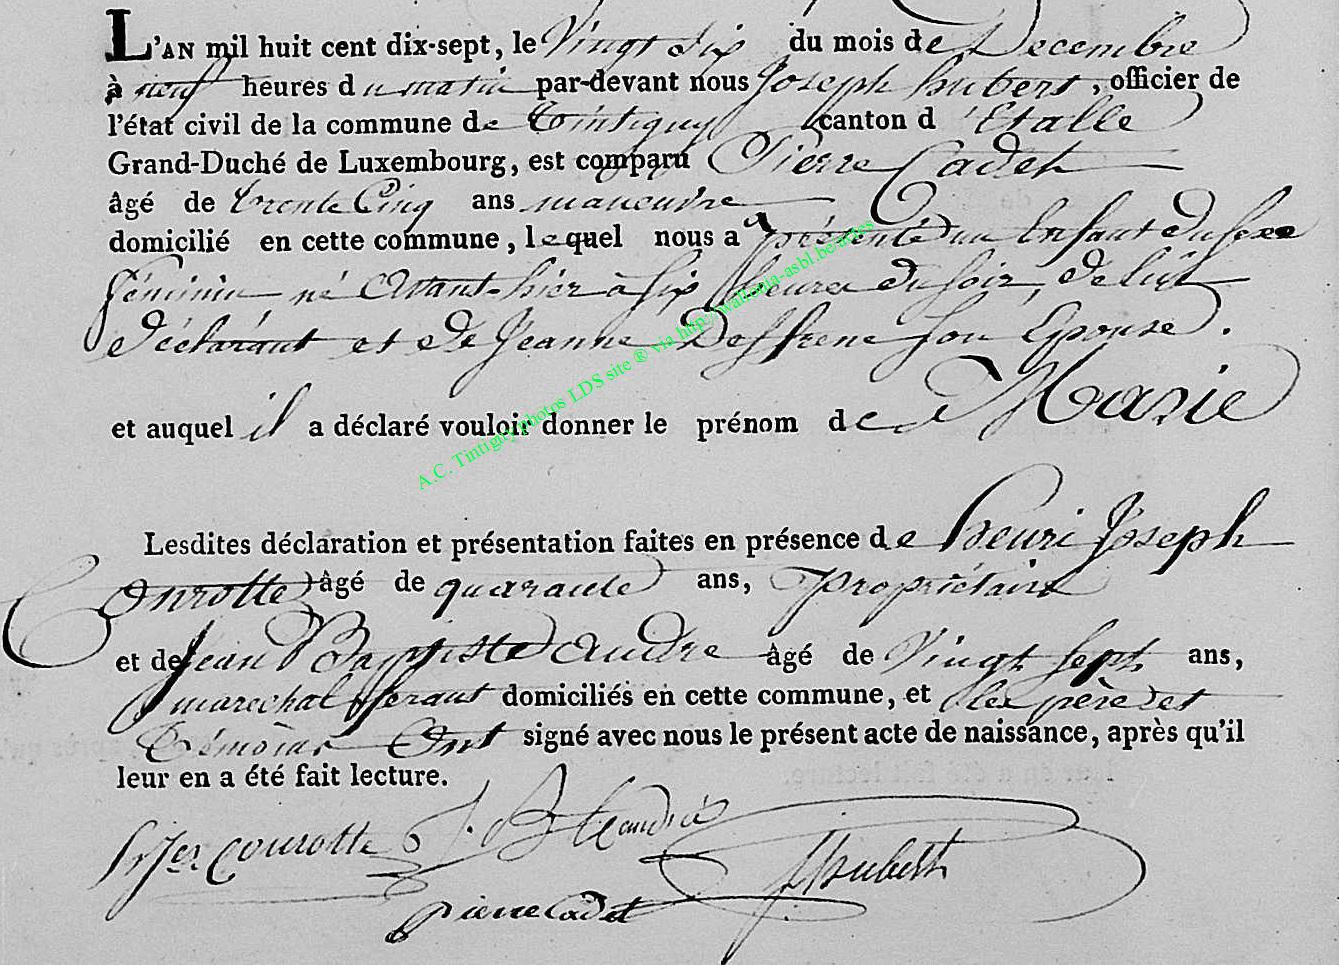 L'AN mil huit cent dix-sept, le Vingt Six du mois de Decembre
à neuf heures du matin par-devant nous Joseph hubert, officier de
l'état civil de la commune de Tintigny canton d'Etalle
Grand-Duché de Luxembourg, est comparu Pierre Cadet
âgé de trente Cinq ans manœuvre
domicilié en cette commune, lequel nous a présenté un Enfant du sexe
féminin né Avant-hier à six heures du soir, de lui
déclarant et de Jeanne Deffrene son Epouse.
et auquel il a déclaré vouloir donner le prénom de Marie
Lesdites déclaration et présentation faites en présence de henri Joseph
Conrotte âgé de quarante ans, propriétaire
et de Jean Baptiste andre âgé de Vingt Sept ans,
marechal ferant domiciliés en cette commune, et les père et
Témoins Ont signé avec nous le présent acte de naissance, après qu'il
leur en a été fait lecture.
conrotte J. B.
pierre Cadet
J hubert
A.C. Tintigny photos LDS site ® via http://wallonia-asbl.be/actes